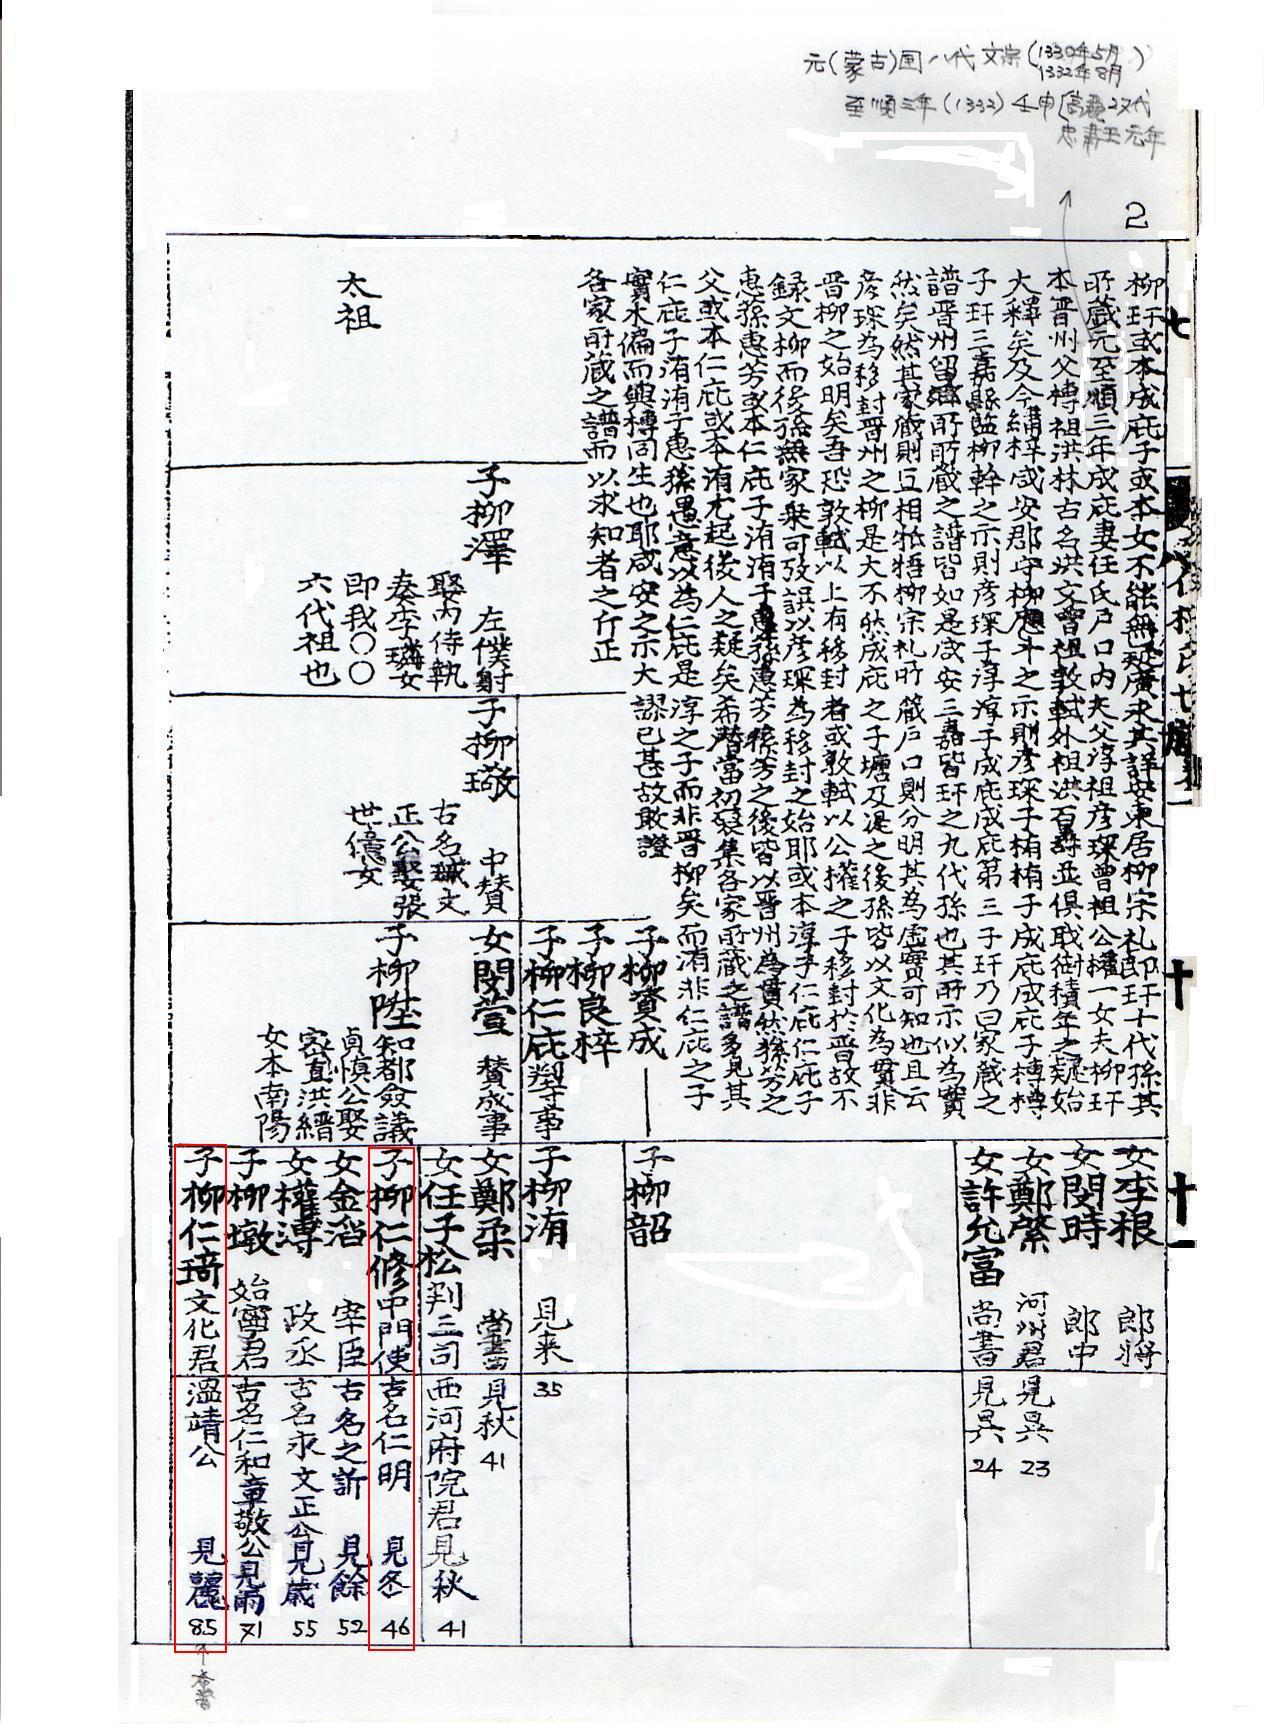 元(蒙古)国八代文宗(1330年5月
1332年8月)
至順三年(1332)壬申[高麗27代
忠肅王元年
2
七
十
十一
柳玕或本成庇子或本女不能無疑廣求其詳安東居柳宗礼郎玕十代孫其
所蔵元至順三年成庇妻任氏戶口內夫父淳祖彦琛曾祖公權一女夫柳玕
本晋州父榑祖洪林古名洪文曾祖敦軾外祖洪百壽並俱載衘積年之疑始
大釋矣及今縛梓咸安郡守柳應斗之示則彦琛子楕楕子成庇成庇子榑榑
子玕三嘉縣監柳幹之示則彦琛子淳淳子成庇成庇第三子玕乃曰家蔵之
譜晋州留鄕所所蔵之譜皆如是咸安三嘉皆玕之九代孫也其所示似為實
然矣然其家蔵則互相牴牾柳宗礼所蔵戶口則分明其為虛實可知也且云
彦琛為移封晋州之柳是大不然成庇之子墉及湜之後孫皆以文化為貫非
晋柳之始明矣吾恐敦軾以上有移封者或敦軾以公權之子移封於晋故不
録文柳而後孫無家乗可攷誤以彦琛為移封之始耶或本淳子仁庇仁庇子
惠蓀惠芳或本仁庇子洧洧子惠蓀惠芳蓀芳之後皆以晋州為貫然蓀芳之
父或本仁庇或本洧尤起後人之疑矣希潜當初裒集各家所蔵之譜多見其
仁庇子洧洧子惠蓀愚意以為仁庇是淳之子而非晋柳矣而洧非仁庇之子
實木偏而與榑同生也耶咸安之示大謬已甚故敢證
各家所蔵之譜而以求知者之斤正
太祖
子柳澤
左僕射
娶內侍執
奏李璘女
即我〇〇
六代祖也
子柳璥
中賛
古名瑊文
正公娶張
世億女
子柳賛成
子柳良梓
子柳仁庇 判事
女閔萱 賛成事
子柳陞 知都僉議
貞愼公娶
密直洪縉
女本南陽
女李根 郎將
女閔時 郎中
女鄭縈 河州君 見異 23
女許允富 尚書 見異 24
子柳韶
子柳洧 見来 35
女鄭柔 尚書 見秋 41
女任子松 判三司 西河府院君見秋 41
子柳仁修 中門使 古名仁明 見冬 46
女金滔 宰臣 古名之訢 見餘 52
女權溥 政丞 古名永文正公見歲 55
子柳墩 始寧君 古名仁和章敬公見雨 71
子柳仁琦 文化君 溫靖公 見麗 85